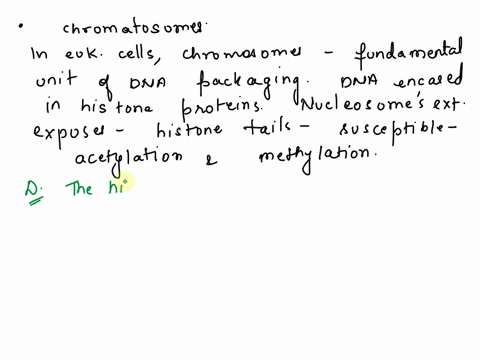 • chromatosomes.
In euk. cells, chromosomes - fundamental
unit of DNA packaging. DNA encased
in histone proteins. Nucleosome's ext.
exposes - histone tails - susceptible -
acetylation & methylation.
D. The hi